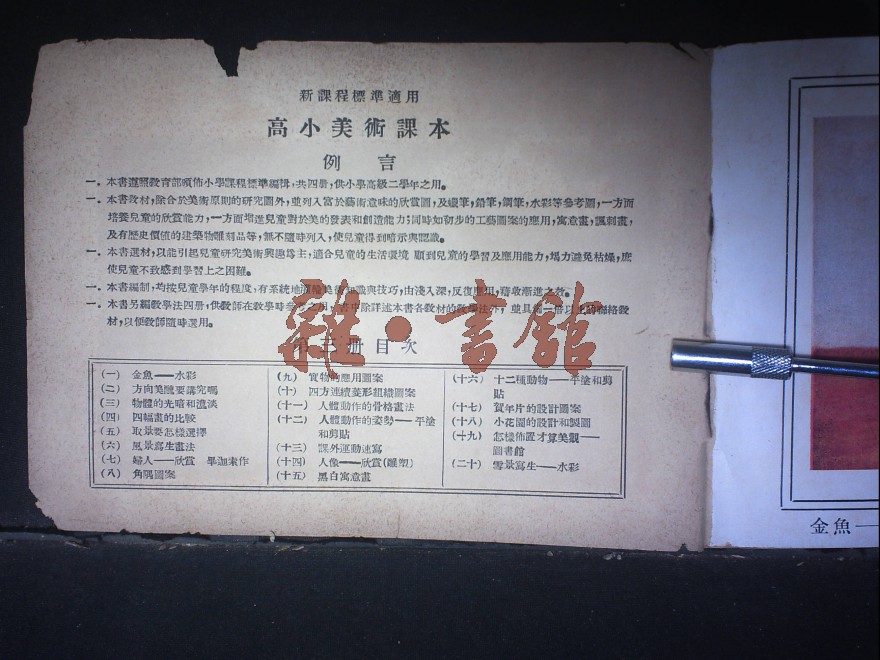 新課程標準適用
高小美術課本
例言
一．本書遵照教育部頒佈小學課程標準編輯，共四册，供小學高級二學年之用。
一．本書教材，除合於美術原則的研究圖外，並列入富於藝術意味的欣賞圖，及蠟筆，鉛筆，鋼筆，水彩等參考圖，一方面
培養兒童的欣賞能力，一方面增進兒童對於美的發表和創造能力；同時如初步的工藝圖案的應用，寓意畫，諷刺畫，
及有歷史價值的建築物雕刻品等，無不隨時列入，使兒童得到暗示與認識。
一．本書選材，以能引起兒童研究美術興趣爲主，適合兒童的生活環境 顧到兒童的學習及應用能力，竭力避免枯燥，庶
使兒童不致感到學習上之困難。
一．本書編制，均按兒童學年的程度，有系統地灌輸美術知識與技巧，由淺入深，反復應用，藉收漸進之效。
一．本書另編教學法四册，供教師在教學時參考之用，書中除詳述本書各教材的教學法外，並具備一倍以上的聯絡教
材，以便教師隨時選用。
第三册目次
（一） 金魚——水彩
（二） 方向美醜要講究嗎
（三） 物體的光暗和濃淡
（四） 四幅畫的比較
（五） 取景要怎樣選擇
（六） 風景寫生畫法
（七） 婦人——欣賞 畢迦索作
（八） 角隅圖案
（九） 實物的應用圖案
（十） 四方連續菱形組織圖案
（十一） 人體動作的骨格畫法
（十二） 人體動作的姿勢——平塗
和剪貼
（十三） 課外運動速寫
（十四） 人像——欣賞（雕塑）
（十五） 黑白寓意畫
（十六） 十二種動物——平塗和剪
貼
（十七） 賀年片的設計圖案
（十八） 小花園的設計和製圖
（十九） 怎樣佈置才算美觀——
圖書館
（二十） 雪景寫生——水彩
雜·書館
金魚—